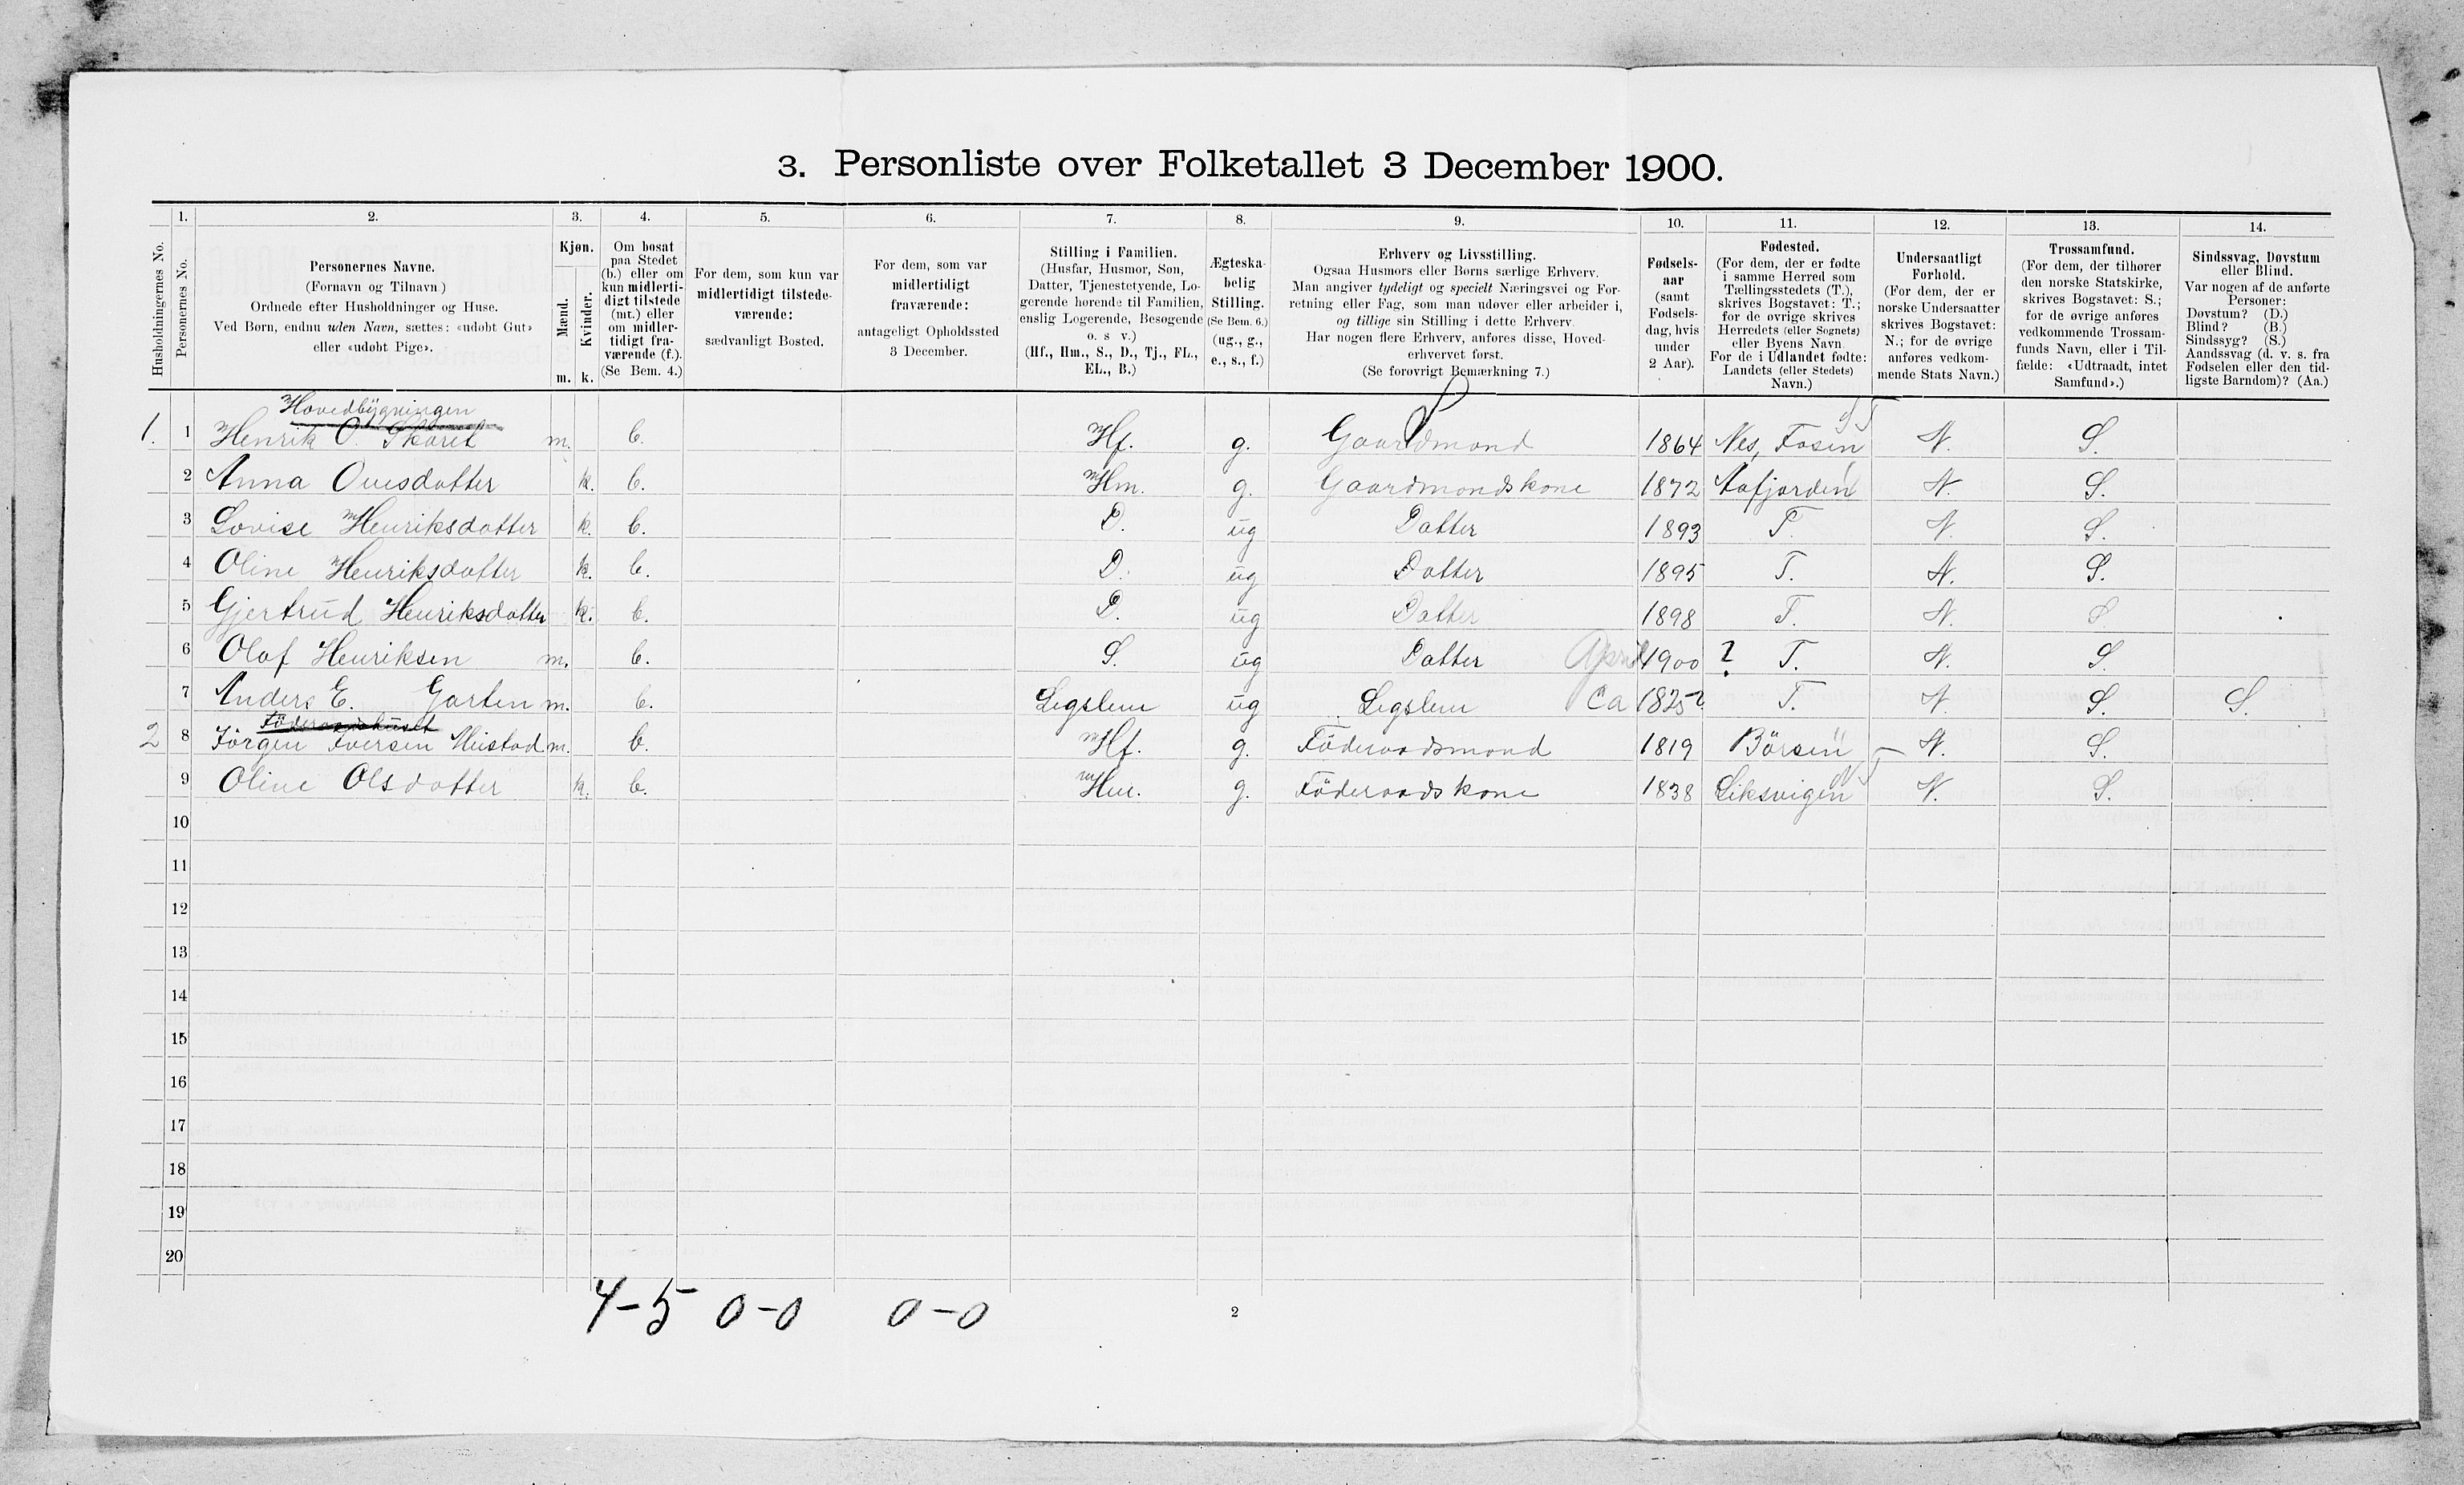 3. Personliste over Folketallet 3 December 1900.
1. 2. 3. 4. 5. 6. 7. 8. 9. 10. 11. 12. 13. 14.
Husholdningernes No.
Personernes No.
Personernes Navne.
(Fornavn og Tilnavn)
Ordnede efter Husholdninger og Huse.
Ved Børn, endnu uden Navn, sættes: «udøbt Gut»
eller «udøbt Pige».
Kjøn.
Mænd.
Kvinder.
m. k.
Om bosat
paa Stedet
(b.) eller om
kun midlerti-
digt tilstede
(mt.) eller
om midler-
tidigt fra-
værende (f.).
(Se Bem. 4.)
For dem, som kun var
midlertidigt tilstede-
værende:
sædvanligt Bosted.
For dem, som var
midlertidigt
fraværende:
antageligt Opholdssted
3 December.
Stilling i Familien.
(Husfar, Husmor, Søn,
Datter, Tjenestetyende, Lo-
gerende hørende til Familien,
enslig Logerende, Besøgende
o. s v.)
(Hf., Hm., S., D., Tj., FL.,
EL., B.)
Ægteska-
belig
Stilling.
(Se Bem. 6.)
(ug., g.,
e., s., f.)
Erhverv og Livsstilling.
Ogsaa Husmors eller Børns særlige Erhverv.
Man angiver tydeligt og specielt Næringsvei og For-
retning eller Fag, som man udøver eller arbeider i,
og tillige sin Stilling i dette Erhverv.
Har nogen flere Erhverv, anføres disse, Hoved-
erhvervet først.
(Se forøvrigt Bemærkning 7.)
Fødsels-
aar
(samt
Fødsels-
dag, hvis
under
2 Aar).
Fødested.
(For dem, der er fødte
i samme Herred som
Tællingsstedets (T.),
skrives Bogstavet: T.;
for de øvrige skrives
Herredets (eller Sognets)
eller Byens Navn.
For de i Udlandet fødte:
Landets (eller Stedets)
Navn.)
Undersaatligt
Forhold.
(For dem, der er
norske Undersaatter
skrives Bogstavet:
N.; for de øvrige
anføres vedkom-
mende Stats Navn.)
Trossamfund.
(For dem, der tilhører
den norske Statskirke,
skrives Bogstavet: S.;
for de øvrige anføres
vedkommende Trossam-
funds Navn, eller i Til-
fælde: «Udtraadt, intet
Samfund».)
Sindssvag, Døvstum
eller Blind.
Var nogen af de anførte
Personer:
Døvstum? (D.)
Blind? (B.)
Sindssyg? (S.)
Aandssvag (d. v. s. fra
Fødselen eller den tid-
ligste Barndom)? (Aa.)
Hovedbygningen
1. 1 Henrik O. Skaret m. b. Hf. g. Gaardmand 1864 Nes, Fosen N. S.
2 Anna Ouesdatter k. b. Hm. g. Gaardmandskone 1872 Aafjorden N. S.
3 Lovise Henriksdatter k. b. D. ug Datter 1893 T. N. S.
4 Oline Henriksdatter k. b. D. ug Datter 1895 T. N. S.
5 Gjertrud Henriksdatter k. b. D. ug Datter 1898 T. N. S
6 Olaf Henriksen m. b. S. ug Datter April 1900 ? T. N. S.
7 Anders E. Garten m. b. Legslem ug Legslem Ca 1825? T. N. S. S.
Föderaadshuset
2 8 Jörgen Iversen Mistad m. b. Hf. g. Föderaadsmand 1819 Börsen N. S.
9 Oline Olsdatter k. b. Hm. g. Föderaadskone 1838 Leksvigen N. S.
10
11
12
13
14
15
16
17
18
19
20
4-5 0-0 0-0
2